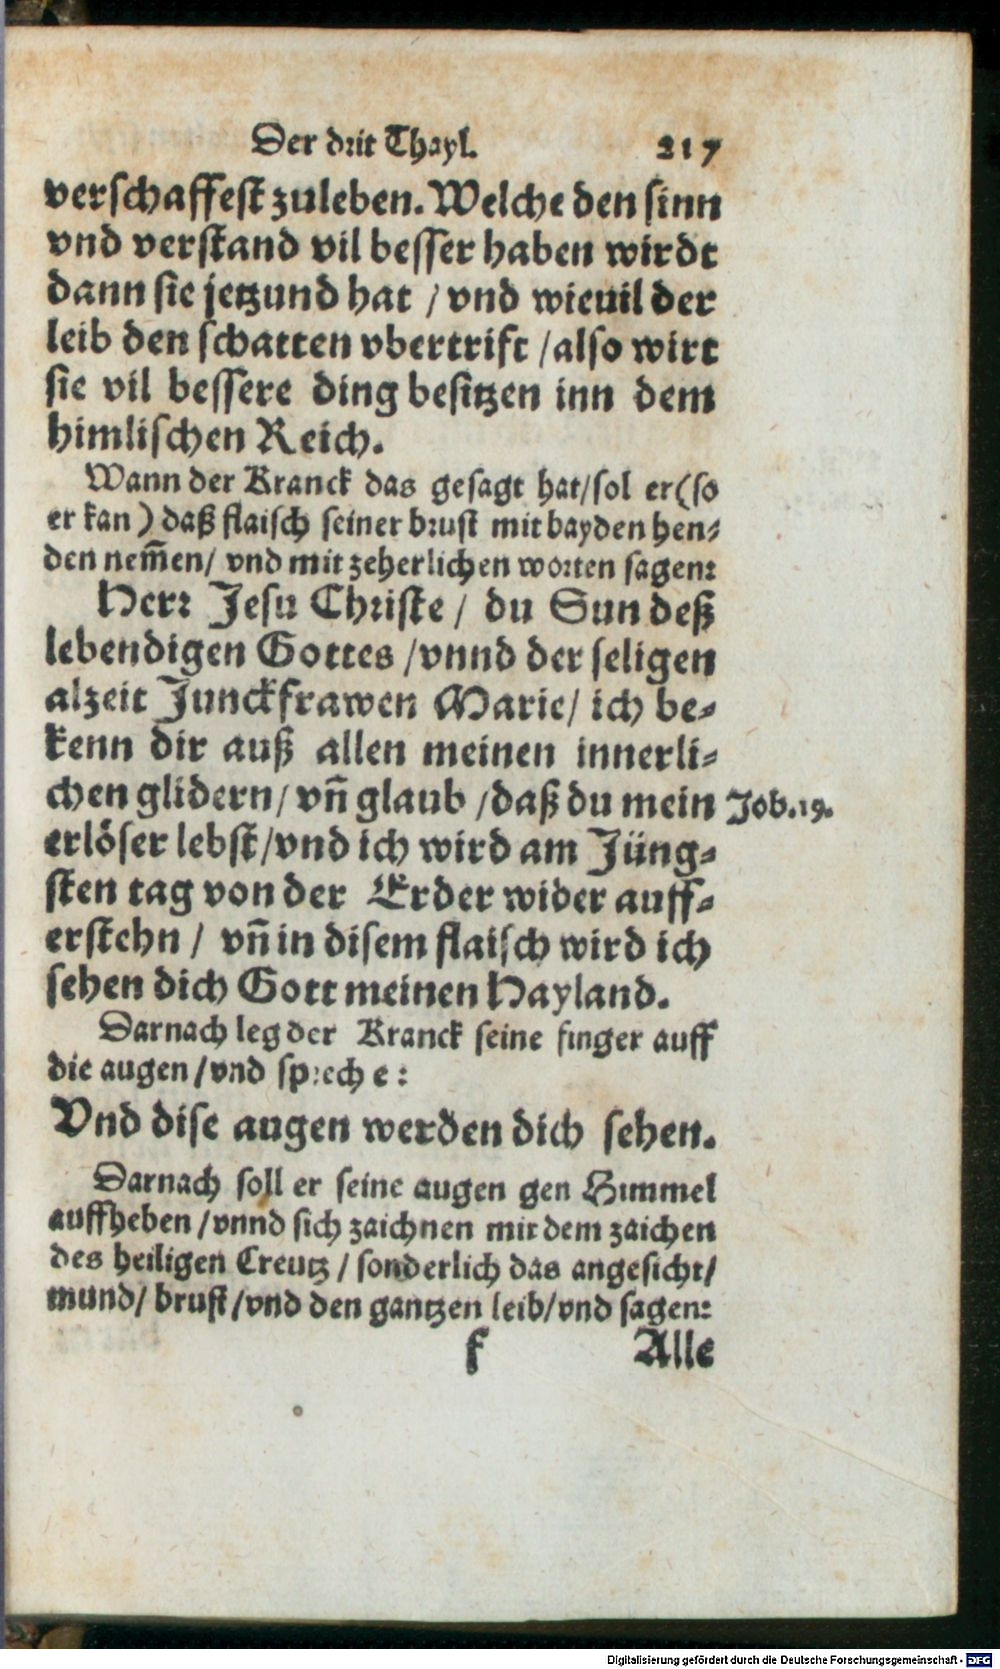 Der drit Thayl. 217
verschaffest zuleben. Welche den sinn
vnd verstand vil besser haben wirdt
dann sie jetzund hat / vnd wieuil der
leib den schatten vbertrift / also wirt
sie vil bessere ding besitzen inn dem
himlischen Reich.
Wann der Kranck das gesagt hat/sol er(so
er kan) daß flaisch seiner brust mit bayden hen-
den nem̃en/ vnd mit zeherlichen worten sagen:
Herr Jesu Christe / du Sun deß
lebendigen Gottes /vnnd der seligen
alzeit Junckfrawen Marie/ ich be-
kenn dir auß allen meinen innerli-
chen glidern/ vñ glaub /daß du mein Job.19.
erlöser lebst/vnd ich wird am Jüng-
sten tag von der Erder wider auff-
erstehn / vñ in disem flaisch wird ich
sehen dich Gott meinen Hayland.
Darnach leg der Kranck seine finger auff
die augen /vnd spreche:
Vnd dise augen werden dich sehen.
Darnach soll er seine augen gen Himmel
auffheben /vnnd sich zaichnen mit dem zaichen
des heiligen Creutz / sonderlich das angesicht/
mund/ brust /vnd den gantzen leib/vnd sagen:
f Alle
Digitalisierung gefördert durch die Deutsche Forschungsgemeinschaft - DFG